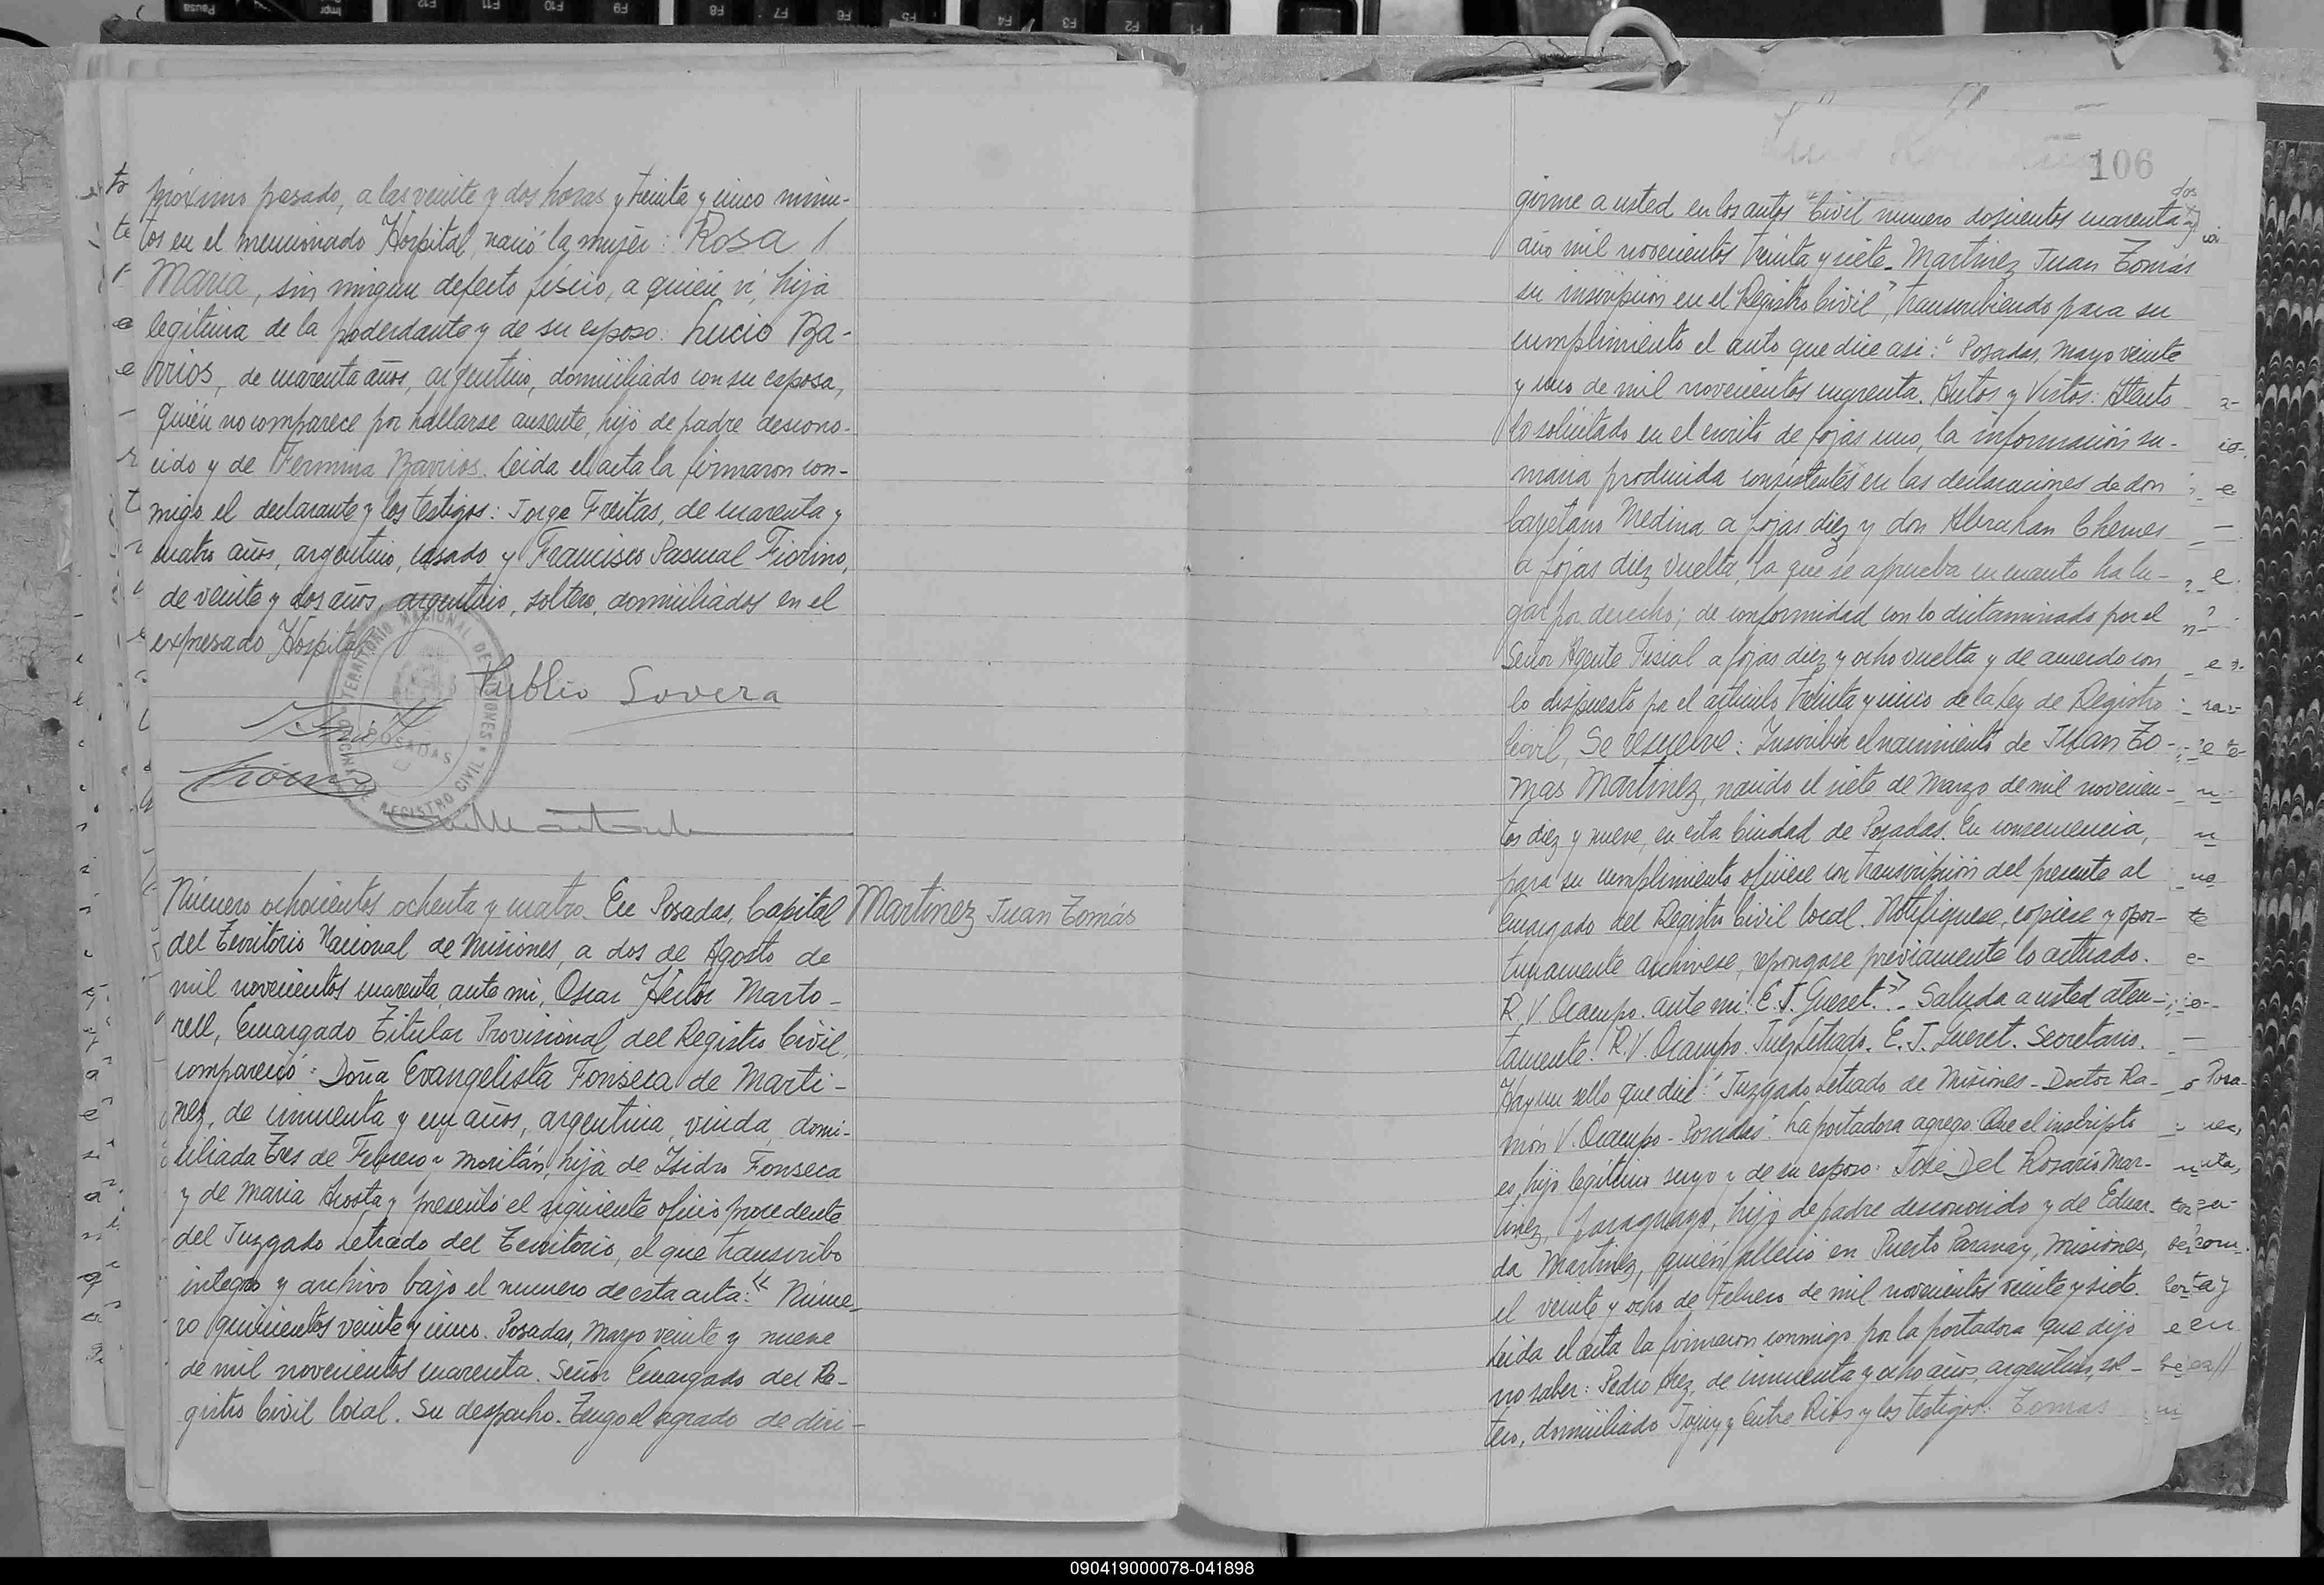 próximo pasado, a las veinte y dos horas y treinta y cinco minu-
tos en el mencionado Hospital, nació la mujer: Rosa
Maria, sin ningun defecto físico, a quien ví, hija
legítima de la poderdante y de su esposo: Lucio Ba-
rrios, de cuarenta años, argentino, domiciliado con su esposa,
quién no comparece por hallarse ausente, hijo de padre descono-
cido y de Fermina Barrios. Leida el acta la firmaron con-
migo el declarante y los testigos: Jorge Freitas, de cuarenta y
cuatro años, argentino, casado y Francisco Pascual Fiorino,
de veinte y dos años, argentino, soltero, domiciliados en el
expresado Hospital
TERRITORIO NACIONAL DE MISIONES
OFICINA DE REGISTRO CIVIL
POSADAS
Publio Lovera
Número ochocientos ochenta y cuatro. En Posadas, Capital
Martinez Juan Tomás
del Territorio Nacional de Misiones, a dos de Agosto de
mil novecientos cuarenta, ante mi, Oscar Héctor Marto-
rell, Encargado Titular Provisional del Registro Civil,
compareció: Doña Evangelista Fonseca de Marti-
nez, de cincuenta y un años, argentina, viuda, domi-
ciliada Tres de Febrero y Moritán, hija de Isidro Fonseca
y de Maria Acosta y presentó el siguiente oficio procedente
del Juzgado Letrado del Territorio, el que transcribo
integro y archivo bajo el numero de esta acta: "Núme-
ro quinientos veinte y cinco. Posadas, Mayo veinte y nueve
de mil novecientos cuarenta. Señor Encargado del Re-
gistro Civil local. Su despacho. Tengo el agrado de diri-
106
girme a usted en los autos "Civil numero doscientos cuarenta y
dos
año mil novecientos treinta y siete. Martinez Juan Tomás
su inscripción en el Registro Civil", transcribiendo para su
cumplimiento el auto que dice asi: "Posadas, Mayo veinte
y uno de mil novecientos cuarenta. Autos y Vistos: Atento
lo solicitado en el escrito de fojas uno, la información su-
maria producida consistentes en las declaraciones de don
Cayetano Medina a fojas diez y don Abrahan Chemes
a fojas diez vuelta, la que se aprueba en cuanto ha lu-
gar por derecho; de conformidad con lo dictaminado por el
Señor Agente Fiscal a fojas diez y ocho vuelta y de acuerdo con
lo dispuesto por el artículo treinta y cinco de la Ley de Registro
Civil, Se resuelve: Inscribir el nacimiento de Juan To-
mas Martinez, nacido el siete de Marzo de mil novecien-
tos diez y nueve, en esta Ciudad de Posadas. En consecuencia,
para su cumplimiento ofíciese con transcripción del presente al
Encargado del Registro Civil local. Notifiquese, cópiese y opor-
tunamente archívese, repongase previamente lo actuado.
R. V. Ocampo. ante mi: E. J. Gueret." - Saluda a usted aten-
tamente. R. V. Ocampo. Juez Letrado. E. J. Gueret. Secretario.
Hay un sello que dice: "Juzgado Letrado de Misiones - Doctor Ra-
món V. Ocampo - Posadas". La portadora agregó: Que el inscripto
es hijo legítimo suyo y de su esposo: José Del Rosario Mar-
tinez, paraguayo, hijo de padre desconocido y de Eduar-
da Martinez, quién falleció en Puerto Paranay, Misiones,
el veinte y ocho de Febrero de mil novecientos veinte y siete.
Leida el acta la firmaron conmigo por la portadora que dijo
no saber: Pedro Arez, de cincuenta y ocho años, argentino, sol-
tero, domiciliado Jujuy y Entre Rios y los testigos: Tomas
090419000078-041898